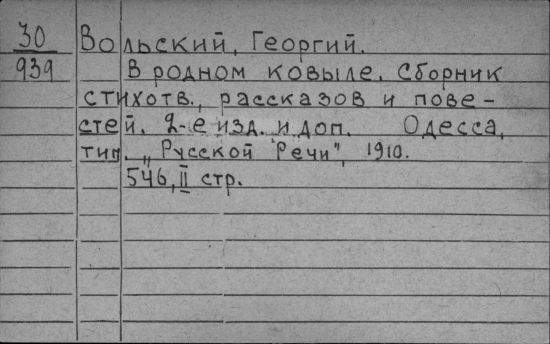 30 Вольский, Георгий.
939 В родном ковыле. Сборник
стихотв., рассказов и пове-
стей. 2-е изд. и доп. Одесса,
тип. „Русской Речи", 1910.
546, II стр.